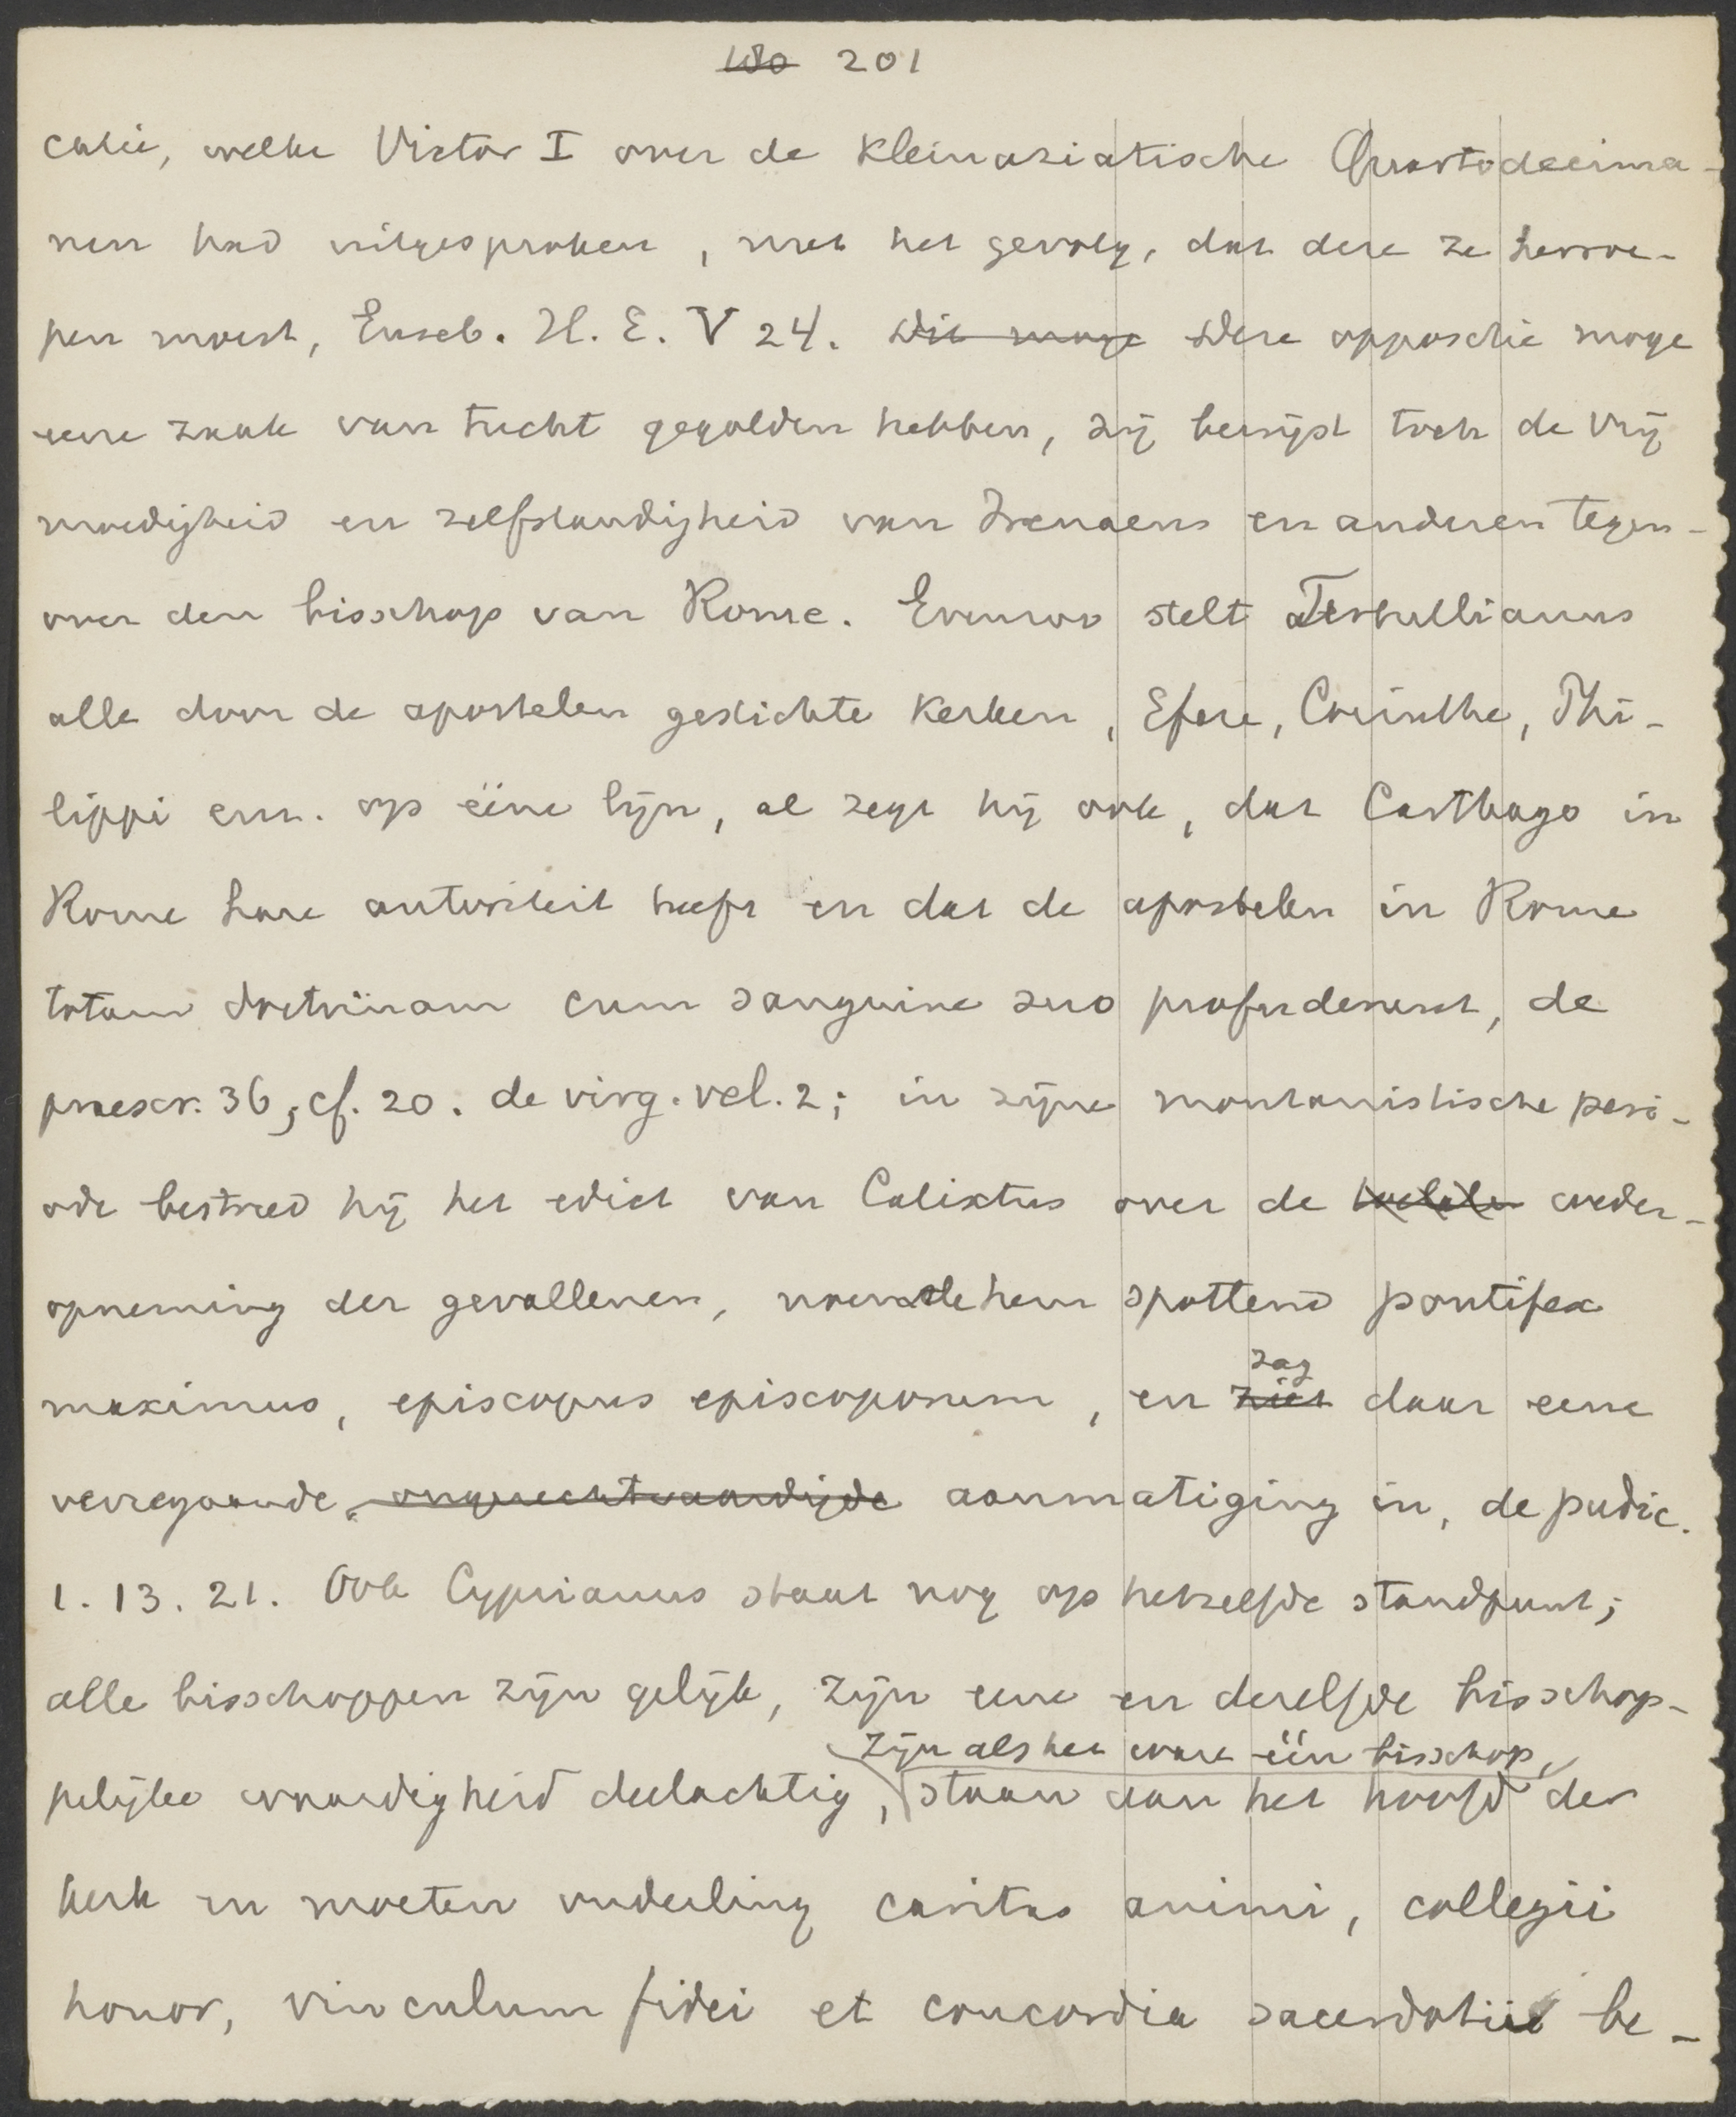 201
catie, welke Victor I over de Kleinaziatische Quartodecima-
nen had uitgesproken, met het gevolg, dat deze ze herroe-
pen moest, Euseb. H. E. V 24. Dit moge Deze oppositie moge
eene zaak van tucht gegolden hebben, zij bewijst toch de vrij
moedigheid en zelfstandigheid van Irenaeus en anderen tegen-
over den bisschop van Rome. Evenzoo stelt Tertullianus
alle door de apostelen gestichte kerken, Efeze, Corinthe, Phi-
lippi enz. op ééne lijn, al zegt hij ook, dat Carthago in
Rome hare autoriteit heeft en dat de apostelen in Rome
totam doctrinam cum sanguine suo profuderunt, de
praescr. 36, cf. 20. de virg. vel. 2; in zijne montanistische peri-
ode bestreed hij het edict van Calixtus over de weder-
opneming der gevallenen, noemde hem spottend pontifex
zag
maximus, episcopus episcoporum, en ziet daar eene
verregaande, ongerechtvaardigde aanmatiging in, de pudic.
1. 13. 21. Ook Cyprianus staat nog op hetzelfde standpunt;
alle bisschoppen zijn gelijk, zijn eene en dezelfde bisschop-
zijn als het ware één bisschop,
pelijke waardigheid deelachtig, staan aan het hoofd der
kerk en moeten onderling caritas animi, collegii
honor, vinculum fidei et concordia sacerdotii be-